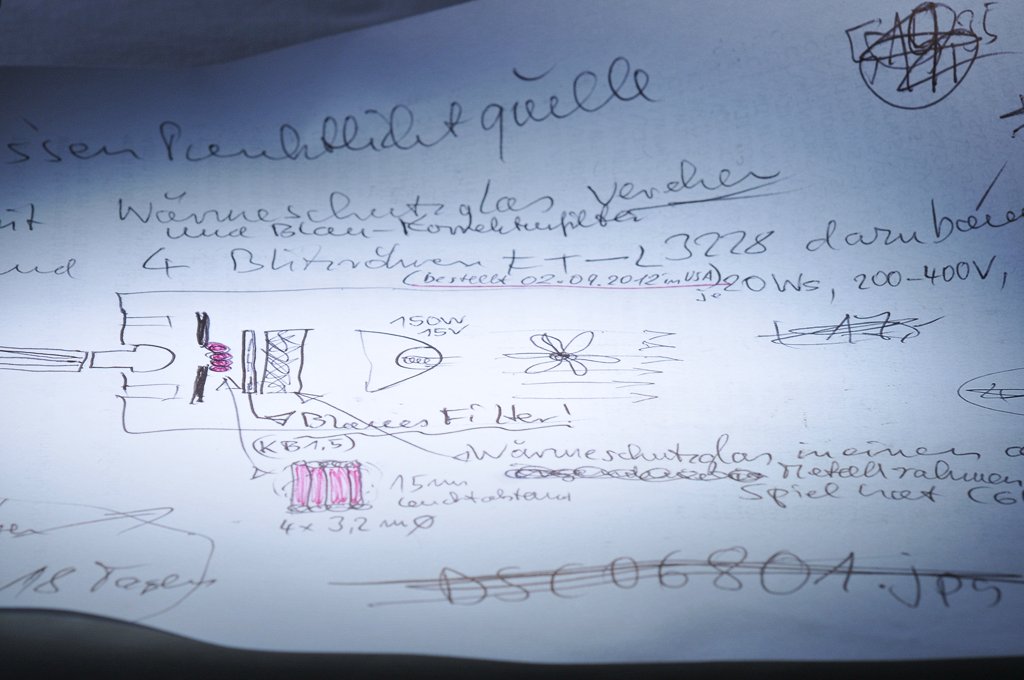 ssen Punktlichtquelle
it Wärmeschutzglas versehen
und Blau-Korrekturfilter
nd 4 Blitzröhren ET-L3228 darüber
(bestellt 02.09.2012 in USA) je 20Ws, 200-400V,
150W
15V
Blaues Filter!
(KB1,5)
Wärmeschutzglas in einen
Metallrahmen
Spiel hat (6
15mm
Leuchtabstand
4x 3,2mØ
18 Tagen
DSC06801.jpg